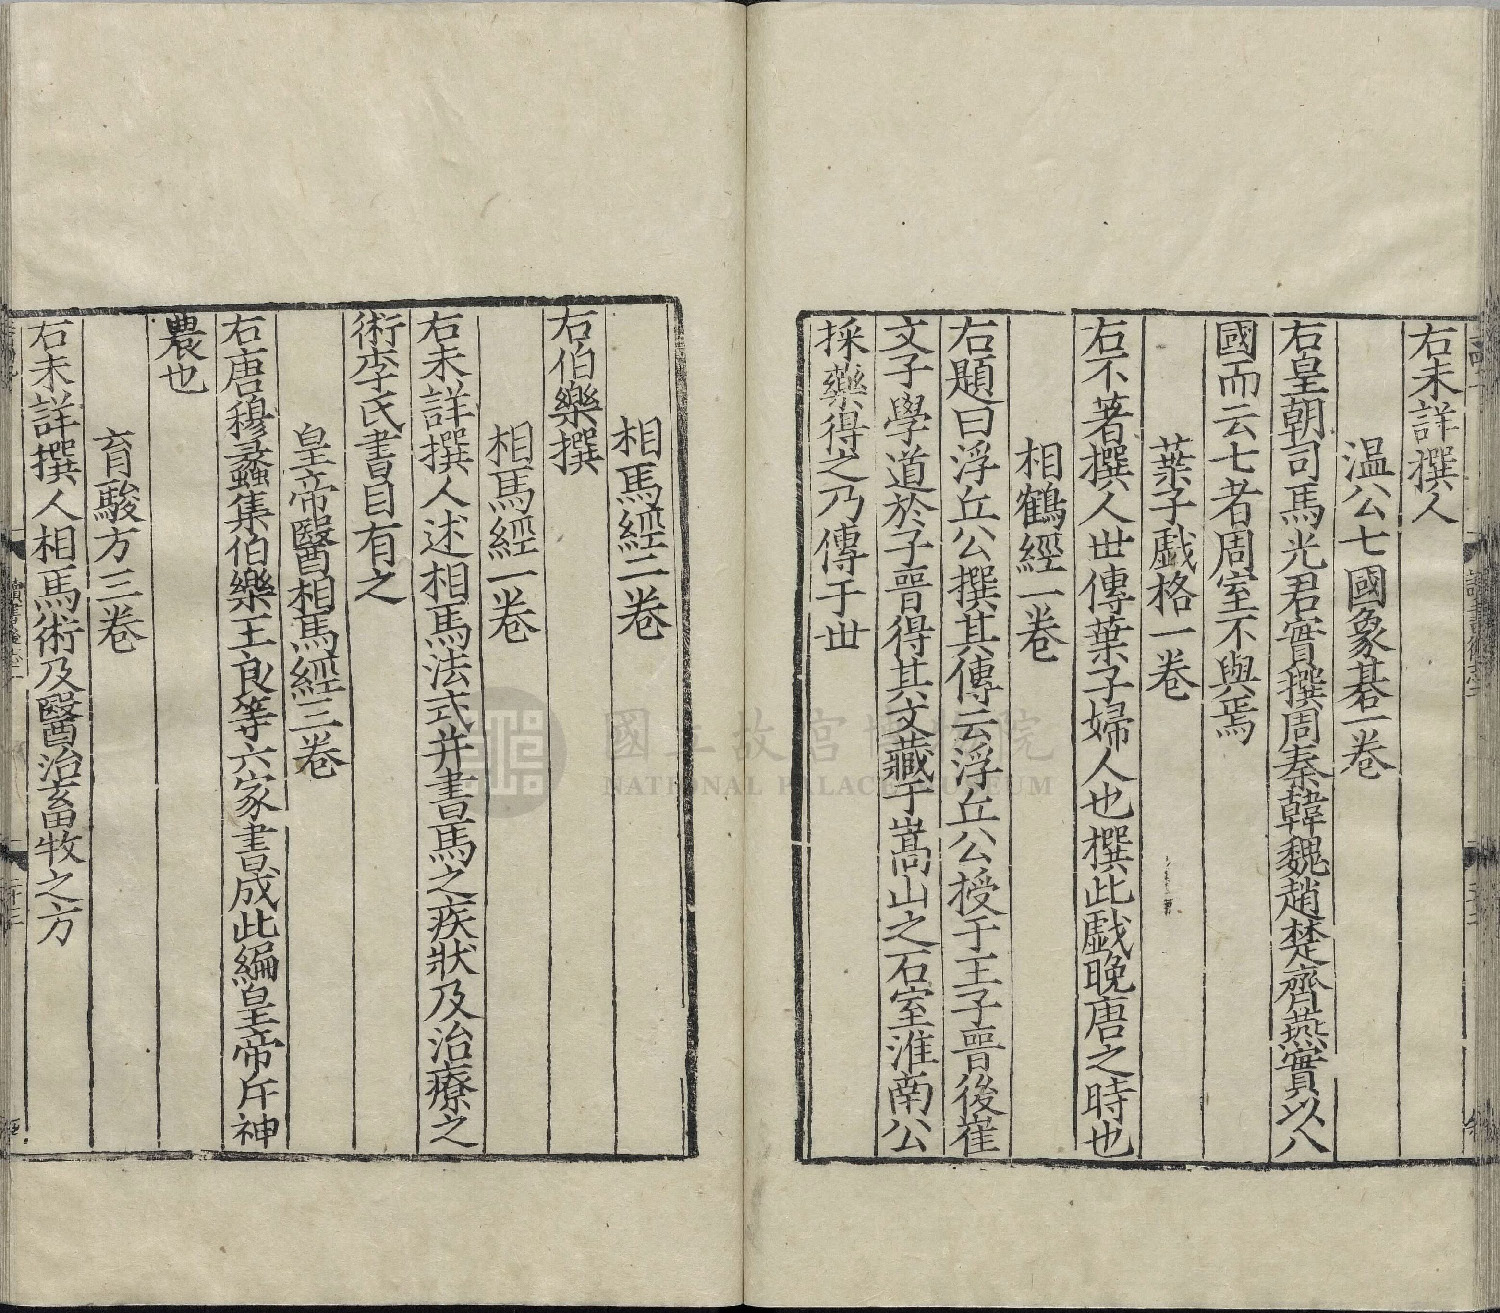 右未詳撰人
温公七國象棊一卷
右皇朝司馬光君實撰周秦韓魏趙楚齊燕實以八
國而云七者周室不與焉
葉子戱格一卷
右不著撰人世傳葉子婦人也撰此戱晚唐之時也
相鶴經一卷
右題曰浮丘公撰其傳云浮丘公授于王子晉後崔
文子學道於子晉得其文藏于嵩山之石室淮南公
採藥得之乃傳于世
相馬經二卷
右伯樂撰
相馬經一卷
右未詳撰人述相馬法式并書馬之疾狀及治療之
術李氏書目有之
皇帝醫相馬經三卷
右唐穆蠡集伯樂王良等六家書成此編皇帝斤神
農也
育駿方三卷
右未詳撰人相馬術及醫治畜牧之方
國立故宮博物院
NATIONAL PALACE MUSEUM